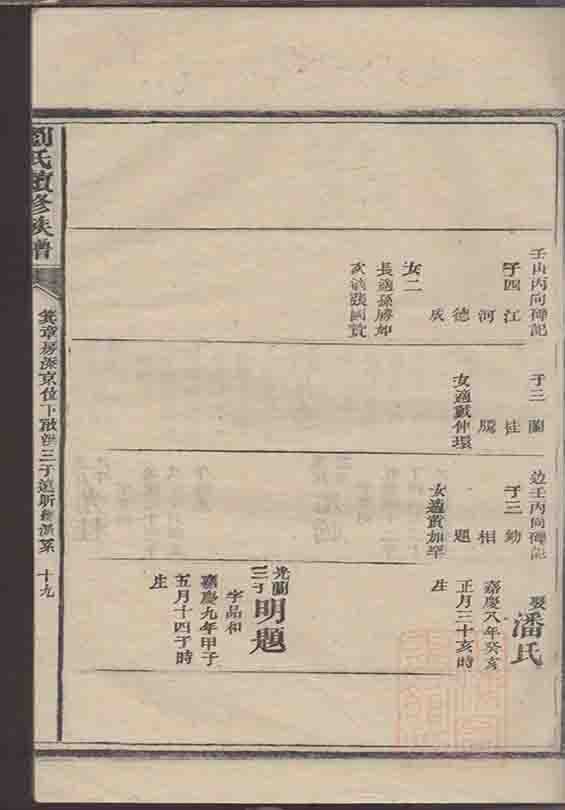 壬山丙向碑記
子四 江
河
德
成
女二
長適孫勝如
次適張國賓
子三 蘭
桂
騰
女適戴仲環
边壬丙向碑記
子三 勷
相
題
女適黃加學
娶潘氏
嘉慶八年癸亥
正月三十亥時
生
光蘭
三子 明題
字品和
嘉慶九年甲子
五月十四子時
生
劉氏續修族譜
房深京位下
三子
十九